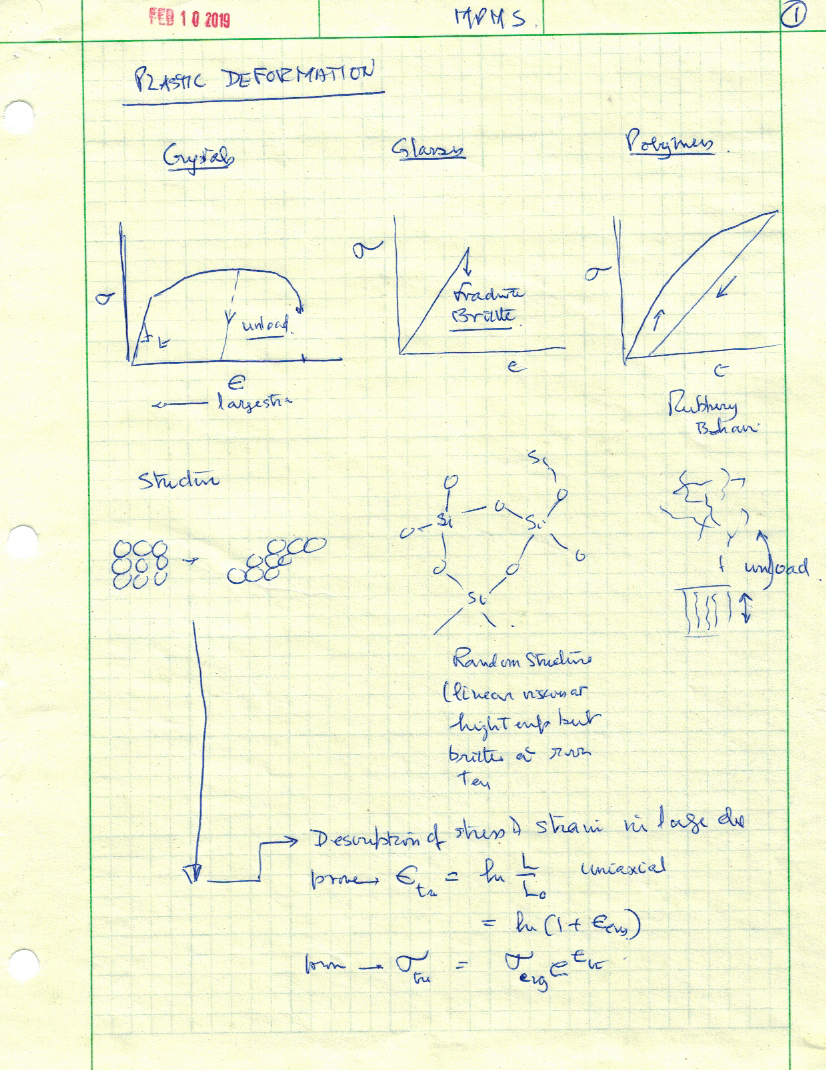 FEB 10 2019
MPMS.
1
PLASTIC DEFORMATION
Crystals
Glasses
Polymers.
σ
E
unload
ϵ
σ
fracture
Brittle
ϵ
σ
ϵ
Rubbery
Structure
O
Si
O
O
Si
O
Si
O
O
O
Si
unload
Random Structure
(linear viscous at
high temp but
brittle at room
Description of stress & strain in large
prove → ϵtr = ln L/L₀ uniaxial
= ln (1 + ϵeng)
→ σtr = σeng e^ϵtr